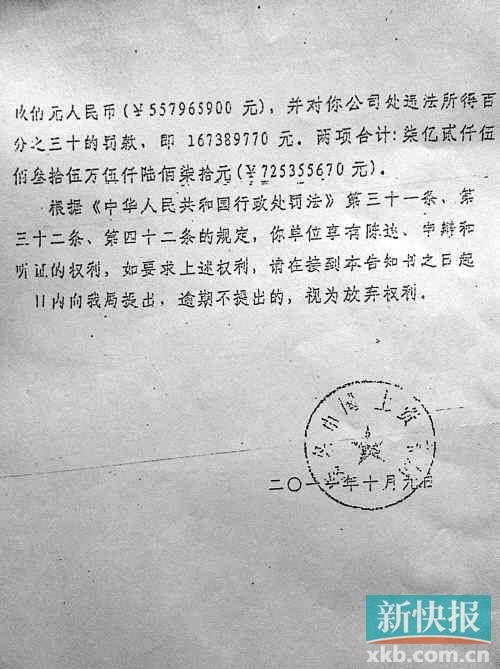 玖佰元人民币(￥557965900 元)，并对你公司处违法所得百
分之三十的罚款，即 167389770 元。两项合计：柒亿贰仟伍
佰叁拾伍万伍仟陆佰柒拾元(￥725355670 元)。
根据《中华人民共和国行政处罚法》第三十一条、第
三十二条、第四十二条的规定，你单位享有陈述、申辩和
听证的权利，如要求上述权利，请在接到本告知书之日起
日内向我局提出，逾期不提出的，视为放弃权利。
国土资
二〇一 年十月九日
新快报
xkb.com.cn